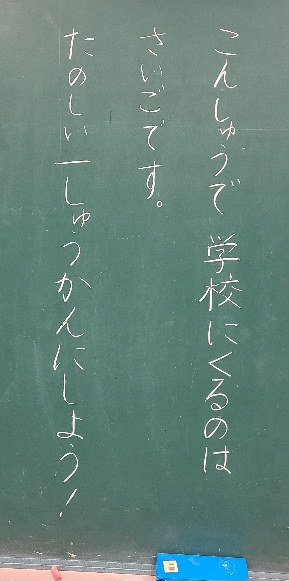 こんしゅうで 学校にくるのは
さいごです。
たのしい一しゅうかんにしよう!